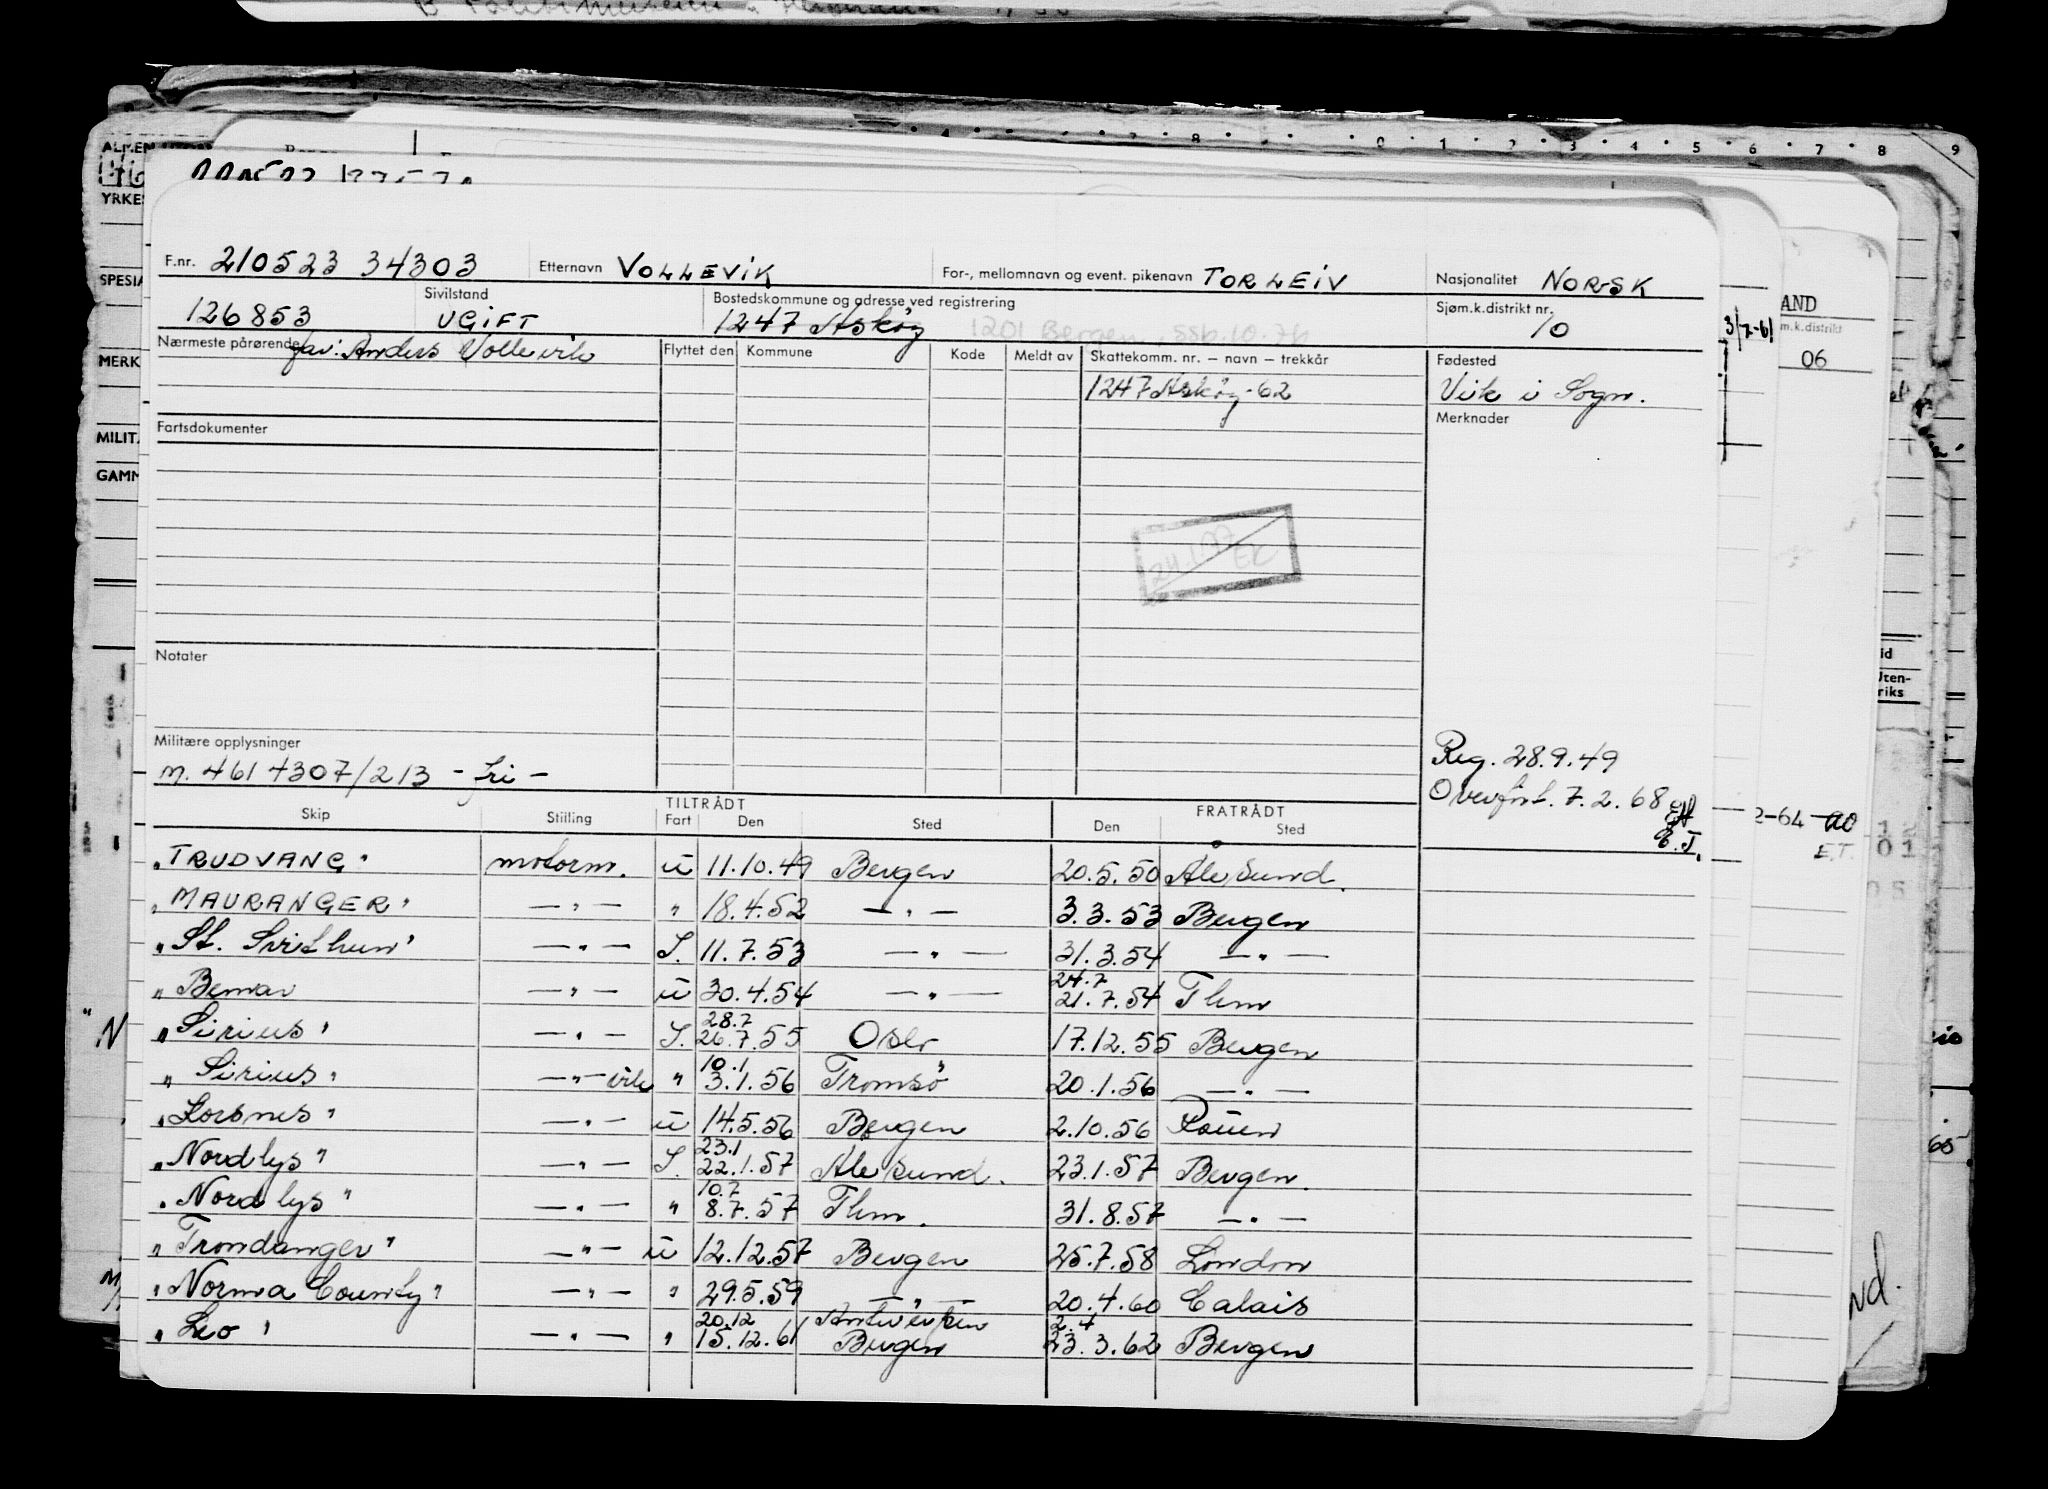 ALMEN
YRKE
SPESIA
MERK
MILIT
GAMM
F.nr. 210523 34303 Etternavn VOLLEVIK For-, mellomnavn og event. pikenavn TORLEIV Nasjonalitet NORSK
126853 Sivilstand UGIFT Bostedskommune og adresse ved registrering 1247 Askøy 1201 Bergen, ssb.10.76 Sjøm.k.distrikt nr. 10
Nærmeste pårørende far: Anders Vollevik Flyttet den Kommune Kode Meldt av Skattekomm. nr. – navn – trekkår Fødested
1247 Askøy-62 Vik i Sogn.
Fartsdokumenter Merknader
Notater
Militære opplysninger
m. 461 4307/213 - fri -
Reg. 28.9.49
Overført. 7.2.68
E.T.
TILTRÅDT FRATRÅDT
Skip Stilling Fart Den Sted Den Sted
"TRUDVANG" motorm. u 11.10.49 Bergen 20.5.50 Ålesund.
"MAURANGER" —"— " 18.4.52 —"— 3.3.53 Bergen
"St. Svithun" —"— S. 11.7.53 —"— 31.3.54 —"—
24.7
"Bemar —"— u 30.4.54 —"— 21.7.54 Thm
28.7
"Sirius" —"— S. 26.7.55 Oslo 17.12.55 Bergen
10.1
"Sirius" —"— vik " 3.1.56 Tromsø 20.1.56 —"—
"Korsnes" —"— u 14.5.56 Bergen 2.10.56 Rouen
23.1
"Nordlys" —"— S. 22.1.57 Ålesund. 23.1.57 Bergen.
10.7
"Nordlys" —"— " 8.7.57 Thm. 31.8.57 —"—
"Trondanger" —"— u 12.12.57 Bergen 25.7.58 London
"Norma County" —"— " 29.5.59 —"— 20.4.60 Calais
20.12 Antwerpen 2.4
"Leo" —"— " 15.12.61 Bergen 23.3.62 Bergen
AND
m.k.distrikt
06
3/7-61
2-64
E.T.
id
Uten-
riks
65